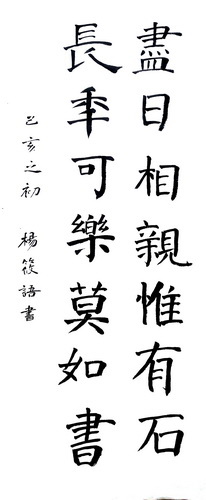 盡日相親惟有石
長年可樂莫如書
己亥之初 楊筱語書